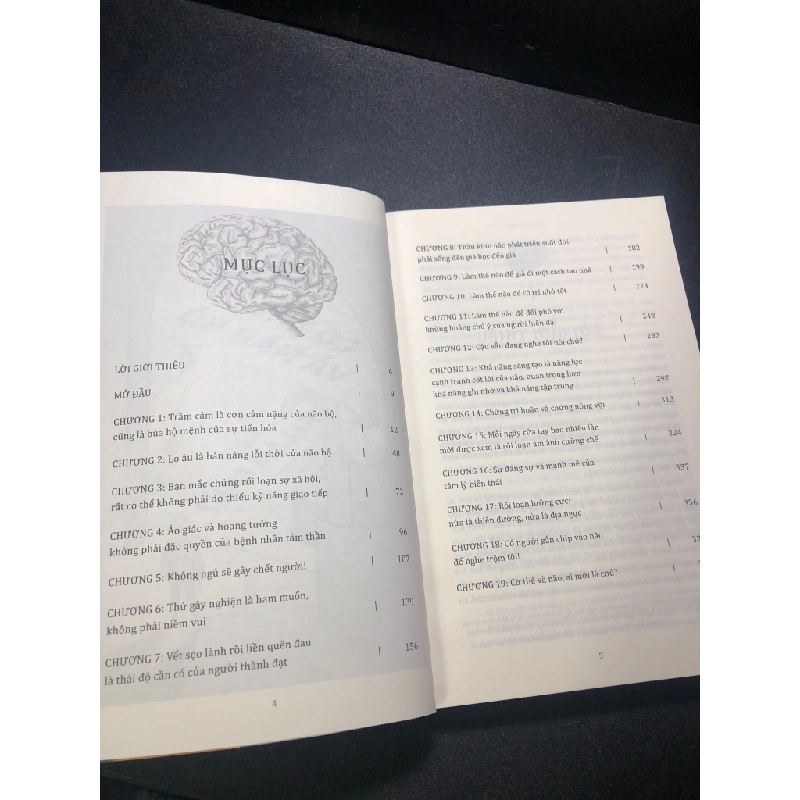 MỤC LỤC
LỜI GIỚI THIỆU | 6
MỞ ĐẦU | 9
CHƯƠNG 1: Trầm cảm là cơn cảm nặng của não bộ,
cũng là bùa hộ mệnh của sự tiến hóa | 12
CHƯƠNG 2: Lo âu là bản năng lỗi thời của não bộ | 48
CHƯƠNG 3: Bạn mắc chứng rối loạn sợ xã hội,
rất có thể không phải do thiếu kỹ năng giao tiếp | 72
CHƯƠNG 4: Ảo giác và hoang tưởng
không phải đặc quyền của bệnh nhân tâm thần | 96
CHƯƠNG 5: Không ngủ sẽ gây chết người! |
CHƯƠNG 6: Thứ gây nghiện là ham muốn,
không phải niềm vui |
CHƯƠNG 7: Vết sẹo lành rồi liền quên đau
là thái độ cần có của người thành đạt | 156
4
CHƯƠNG 8: Thần kinh não phát triển suốt đời
phải sống đến già học đến già | 182
CHƯƠNG 9: Làm thế nào để già đi một cách tao nhã | 199
CHƯƠNG 10: Làm thế nào để có trí nhớ tốt | 224
CHƯƠNG 11: Làm thế nào để đối phó với
khủng hoảng chú ý của người hiện đại | 249
CHƯƠNG 12: Cậu vẫn đang nghe tôi nói chứ? |
CHƯƠNG 13: Khả năng sáng tạo là năng lực
cạnh tranh cốt lõi của não, quan trọng hơn
khả năng ghi nhớ và khả năng tập trung | 297
CHƯƠNG 14: Chứng trì hoãn và chứng nóng vội | 313
CHƯƠNG 15: Mỗi ngày rửa tay bao nhiêu lần
mới được xem là rối loạn ám ảnh cưỡng chế | 324
CHƯƠNG 16: Sự đáng sợ và mạnh mẽ của
tâm lý biến thái | 337
CHƯƠNG 17: Rối loạn lưỡng cực:
nửa là thiên đường, nửa là địa ngục | 356
CHƯƠNG 18: Có người gắn chip vào não
để nghe trộm tôi! |
CHƯƠNG 19: Cơ thể và não, ai mới là chủ? |
5